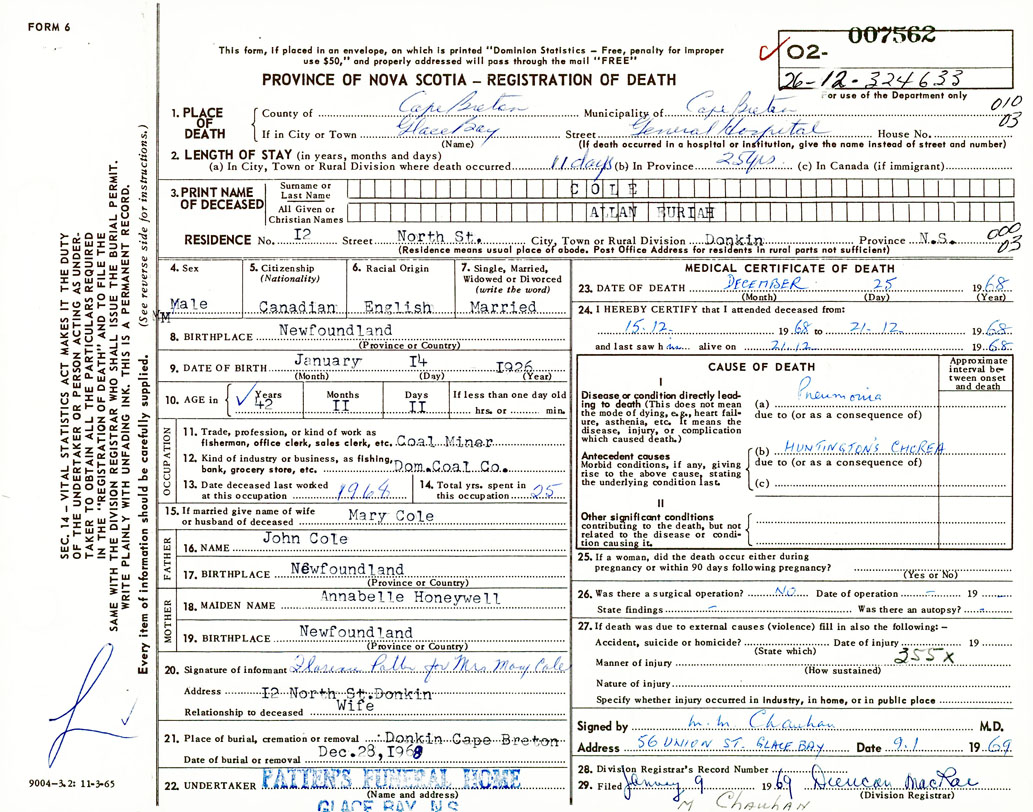 FORM 6
007562
This form, if placed in an envelope, on which is printed "Dominion Statistics – Free, penalty for improper
use $50," and properly addressed will pass through the mail "FREE"
O2-
26-12-324633
PROVINCE OF NOVA SCOTIA – REGISTRATION OF DEATH
For use of the Department only
010
03
1. PLACE OF DEATH
County of Cape Breton Municipality of Cape Breton
If in City or Town Glace Bay Street General Hospital House No.
(Name) (If death occurred in a hospital or institution, give the name instead of street and number)
2. LENGTH OF STAY (in years, months and days)
(a) In City, Town or Rural Division where death occurred 11 days (b) In Province 25 yrs. (c) In Canada (if immigrant)
3. PRINT NAME OF DECEASED
Surname or Last Name COLE
All Given or Christian Names ALLAN BURIAH
RESIDENCE No. I2 Street North St. City, Town or Rural Division Donkin Province N.S.
(Residence means usual place of abode. Post Office Address for residents in rural parts not sufficient)
000
03
4. Sex
Male
M
5. Citizenship (Nationality)
Canadian
6. Racial Origin
English
7. Single, Married, Widowed or Divorced (write the word)
Married
8. BIRTHPLACE Newfoundland
(Province or Country)
9. DATE OF BIRTH January I4 I926
(Month) (Day) (Year)
10. AGE in Years 42 Months II Days II If less than one day old hrs. or min.
OCCUPATION
11. Trade, profession, or kind of work as
fisherman, office clerk, sales clerk, etc. Coal Miner
12. Kind of industry or business, as fishing,
bank, grocery store, etc. Dom.Coal Co.
13. Date deceased last worked at this occupation 1968
14. Total yrs. spent in this occupation 25
15. If married give name of wife or husband of deceased Mary Cole
FATHER
16. NAME John Cole
17. BIRTHPLACE Newfoundland
(Province or Country)
MOTHER
18. MAIDEN NAME Annabelle Honeywell
19. BIRTHPLACE Newfoundland
(Province or Country)
20. Signature of informant for Mrs. Mary Cole
Address I2 North St.Donkin
Relationship to deceased Wife
21. Place of burial, cremation or removal Donkin Cape Breton
Date of burial or removal Dec.28,1968
22. UNDERTAKER PATTEN'S FUNERAL HOME
(Name and address)
GLACE BAY, N.S.
MEDICAL CERTIFICATE OF DEATH
23. DATE OF DEATH DECEMBER 25 1968
(Month) (Day) (Year)
24. I HEREBY CERTIFY that I attended deceased from:
15.12. 1968 to 21.12. 1968
and last saw him alive on 21.12. 1968
CAUSE OF DEATH
Approximate interval between onset and death
I
Disease or condition directly leading to death (This does not mean the mode of dying, e.g., heart failure, asthenia, etc. It means the disease, injury, or complication which caused death.)
(a) Pneumonia
due to (or as a consequence of)
Antecedent causes
Morbid conditions, if any, giving rise to the above cause, stating the underlying condition last.
(b) HUNTINGTON'S CHOREA
due to (or as a consequence of)
(c)
II
Other significant conditions
contributing to the death, but not related to the disease or condition causing it.
25. If a woman, did the death occur either during
pregnancy or within 90 days following pregnancy?
(Yes or No)
26. Was there a surgical operation? NO Date of operation – 19
State findings – Was there an autopsy? –
27. If death was due to external causes (violence) fill in also the following:–
Accident, suicide or homicide? Date of injury 19
(State which)
355x
Manner of injury
(How sustained)
Nature of injury
Specify whether injury occurred in industry, in home, or in public place
Signed by M. M. Chauhan M.D.
Address 56 UNION ST. GLACE BAY Date 9.1 1969
28. Division Registrar's Record Number
29. Filed January 9 1969 Duncan MacRae
(Division Registrar)
M Chauhan
SEC. 14 – VITAL STATISTICS ACT MAKES IT THE DUTY
OF THE UNDERTAKER OR PERSON ACTING AS UNDER-
TAKER TO OBTAIN ALL THE PARTICULARS REQUIRED
IN THE "REGISTRATION OF DEATH" AND TO FILE THE
SAME WITH THE DIVISION REGISTRAR WHO SHALL ISSUE THE BURIAL PERMIT.
WRITE PLAINLY WITH UNFADING INK. THIS IS A PERMANENT RECORD.
Every item of information should be carefully supplied. (See reverse side for instructions.)
9004-3.2: 11-3-65